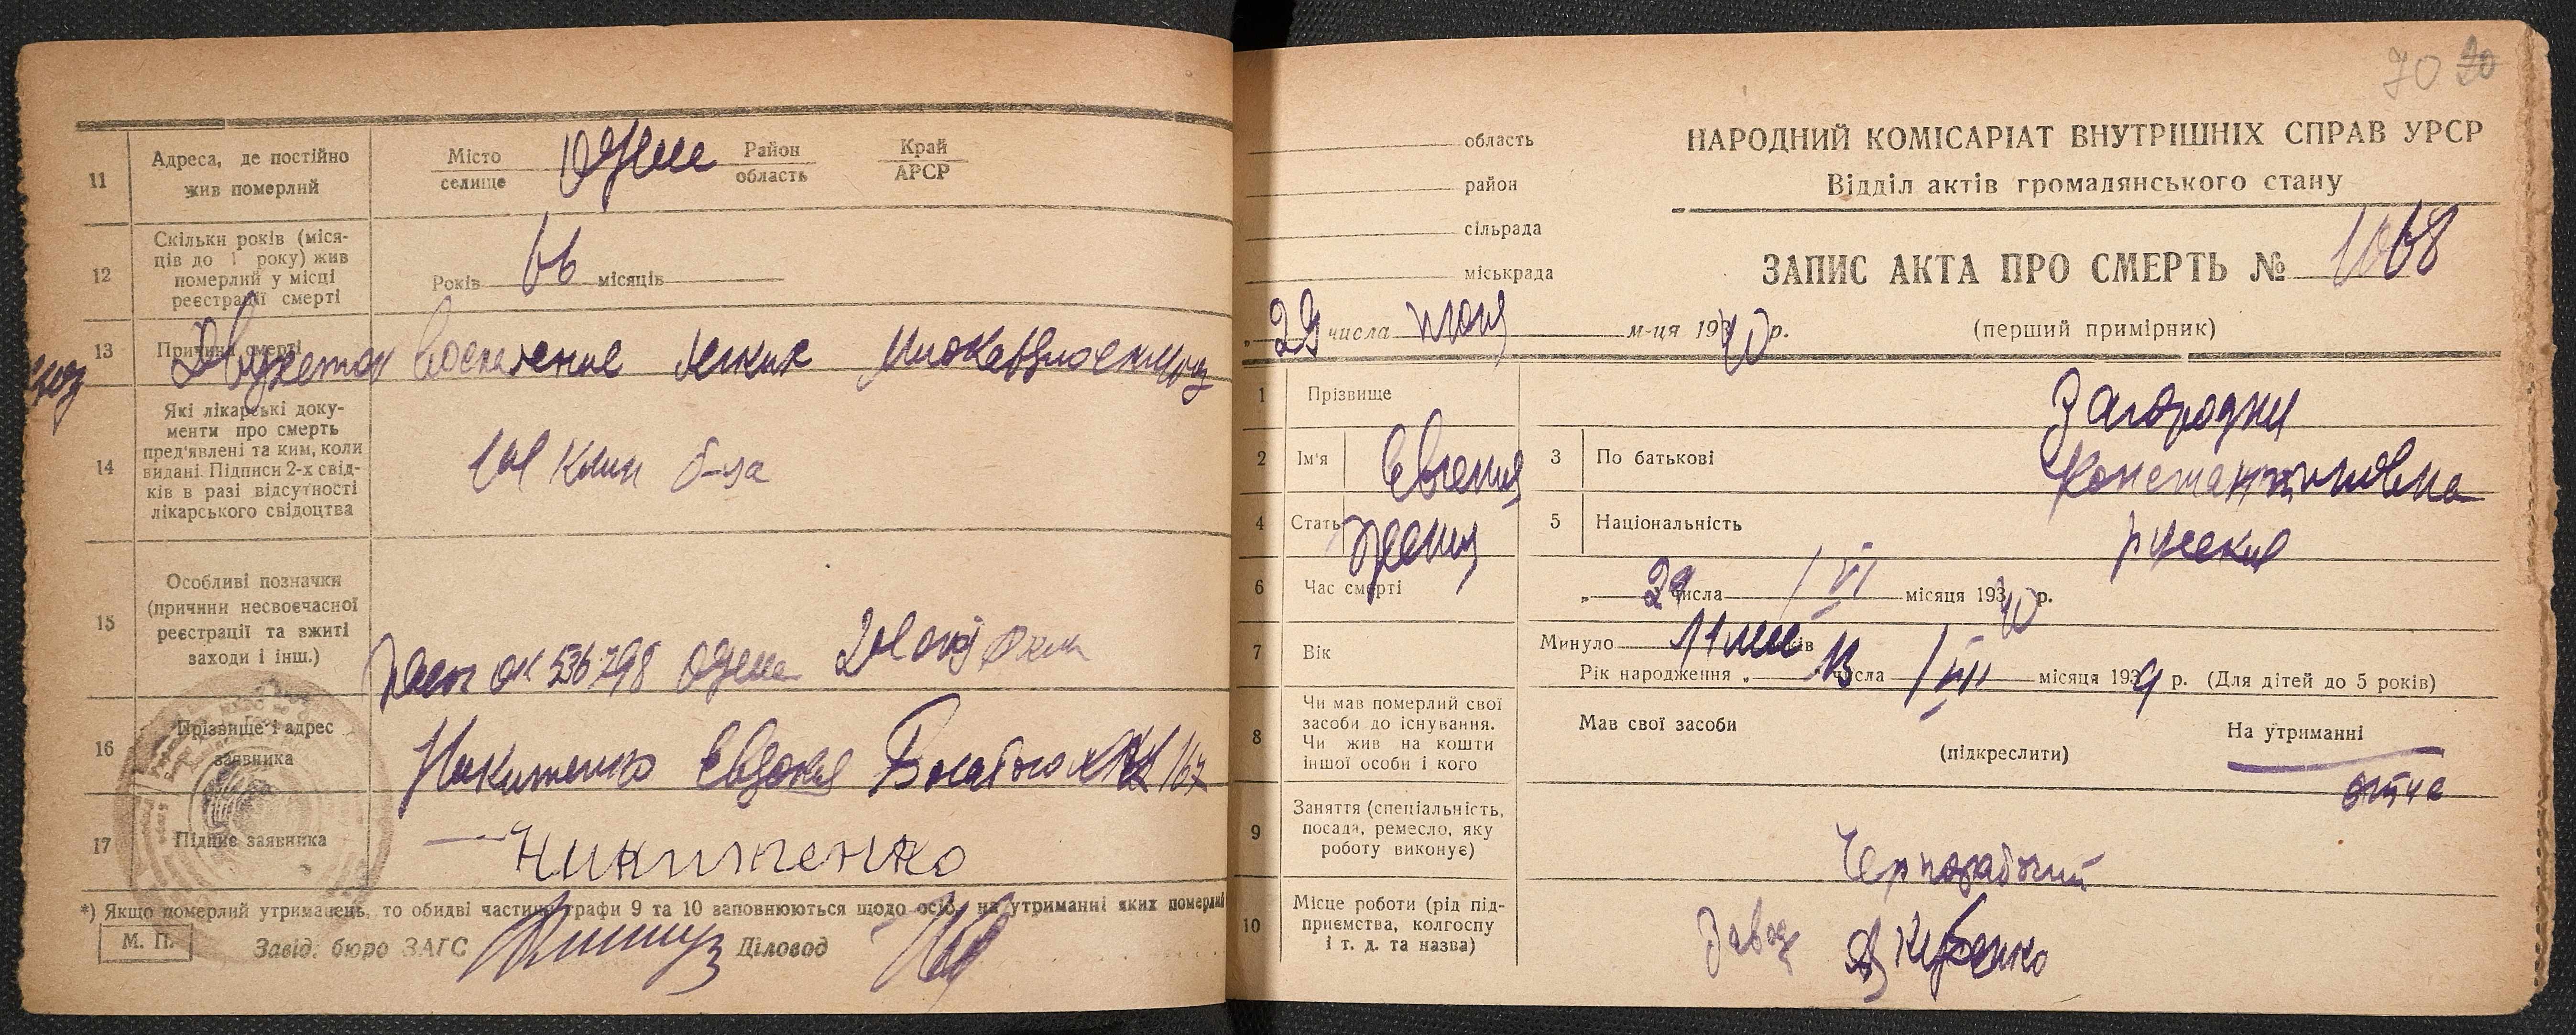 11 Адреса, де постійно жив померлий Місто селище Одеса Район область Край АРСР
12 Скільки років (місяців до 1 року) жив померлий у місці реєстрації смерті Років місяців
13 Причина смерті воспаление легких
14 Які лікарські документи про смерть пред'явлені та ким, коли видані. Підписи 2-х свідків в разі відсутності лікарського свідоцтва клин б-ца
15 Особливі позначки (причини несвоєчасної реєстрації та вжиті заходи і інш.) 536798
16 Прізвище і адрес заявника Никитенко Евдокия
17 Підпис заявника Никитенко
*) Якщо померлий утриманець, то обидві частини графи 9 та 10 заповнюються щодо осіб, на утриманні яких померлий
М. П. Завід. бюро ЗАГС Діловод
70 20
область
район
сільрада
міськрада
НАРОДНИЙ КОМІСАРІАТ ВНУТРІШНІХ СПРАВ УРСР
Відділ актів громадянського стану
ЗАПИС АКТА ПРО СМЕРТЬ № 1068
„29 числа м-ця 1940 р. (перший примірник)
1 Прізвище
2 Ім'я Евгения 3 По батькові Константиновна
4 Стать 5 Національність русская
6 Час смерті „ 29 числа VI місяця 1940 р.
7 Вік Минуло 11 мес років
Рік народження „ 13 числа VII місяця 1939 р. (Для дітей до 5 років)
8 Чи мав померлий свої засоби до існування. Чи жив на кошти іншої особи і кого Мав свої засоби (підкреслити) На утриманні отца
9 Заняття (спеціальність, посада, ремесло, яку роботу виконує) Чернорабочий
10 Місце роботи (рід підприємства, колгоспу і т. д. та назва) Завод